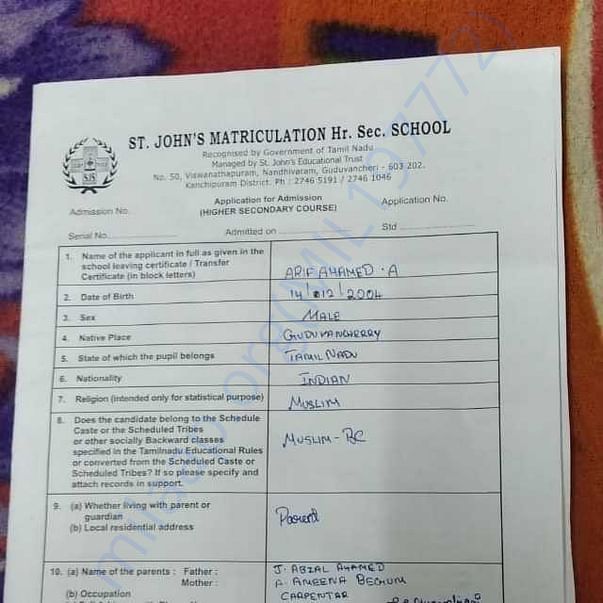 ST. JOHN'S MATRICULATION Hr. Sec. SCHOOL
Recognised by Government of Tamil Nadu
Managed by St. John's Educational Trust
No. 50, Viswanathapuram, Nandhivaram, Guduvancheri - 603 202.
Kanchipuram District. Ph : 2746 5191 / 2746 1046
SJS
Application for Admission
(HIGHER SECONDARY COURSE)
Admission No.
Application No.
Serial No.
Admitted on
Std
1. Name of the applicant in full as given in the
school leaving certificate / Transfer
Certificate (in block letters)
ARIF AHAMED . A
2. Date of Birth
14/012/2004
3. Sex
MALE
4. Native Place
GUDUVANCHERRY
5. State of which the pupil belongs
TAMIL NADU
6. Nationality
INDIAN
7. Religion (intended only for statistical purpose)
MUSLIM
8. Does the candidate belong to the Schedule
Caste or the Scheduled Tribes
or other socially Backward classes
specified in the Tamilnadu Educational Rules
or converted from the Scheduled Caste or
Scheduled Tribes? If so please specify and
attach records in support.
MUSLIM-BC
9. (a) Whether living with parent or
guardian
(b) Local residential address
Parent
10. (a) Name of the parents : Father :
J. ABZAL AHAMED
Mother :
A. AMEENA BEGHUM
(b) Occupation
CARPENTAR